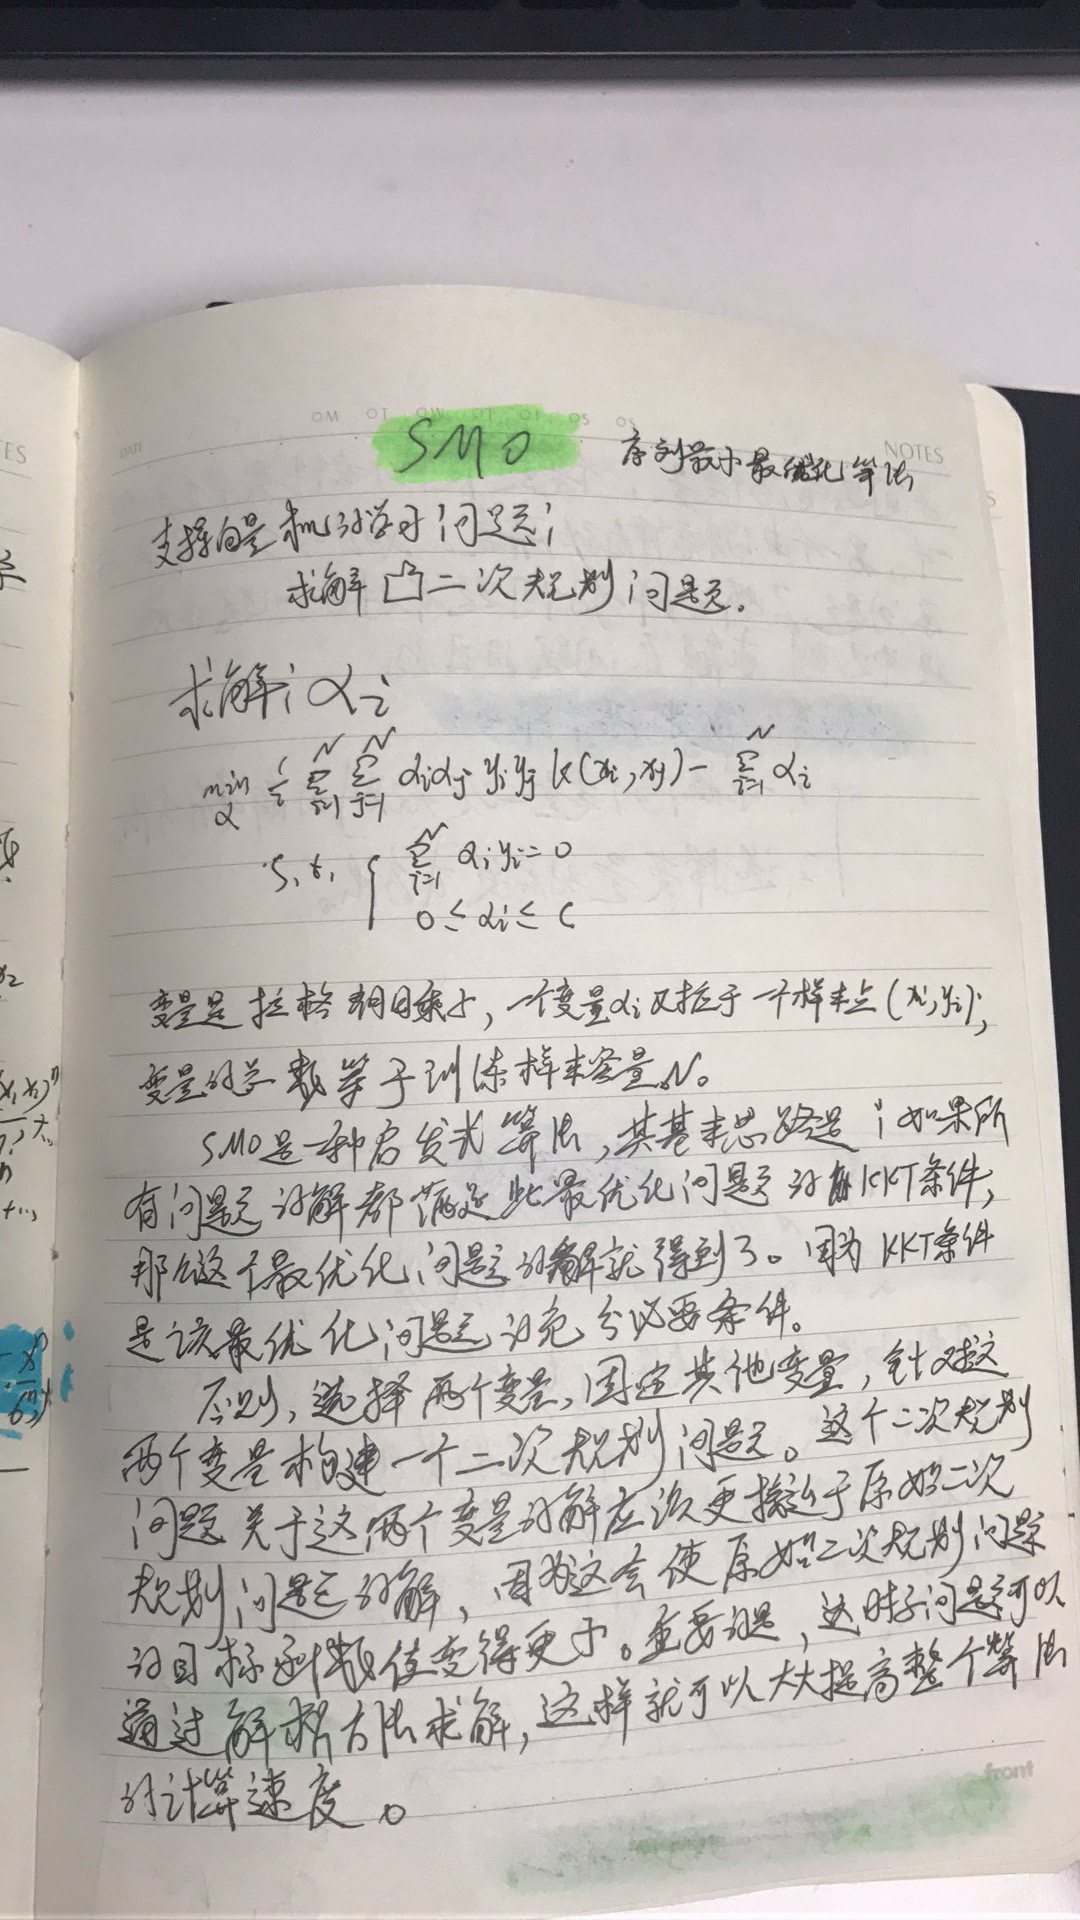 DATE
NOTES
SMO 序列最小最优化算法
支撑向量机的学习问题:
求解凸二次规划问题.
求解: αi
min α 1/2 Σ(i=1→N) Σ(j=1→N) αiαj yiyj k(xi,xj) - Σ(i=1→N) αi
s.t. { Σ(i=1→N) αiyi=0
0 ≤ αi ≤ C
变量是拉格朗日乘子,一个变量αi对应于一个样本点(xi,yi);
变量的总数等于训练样本容量N。
SMO是一种启发式算法,其基本思路是:如果所
有问题的解都满足此最优化问题的KKT条件,
那么这个最优化问题的解就得到了。因为KKT条件
是该最优化问题的充分必要条件。
否则,选择两个变量,固定其他变量,针对这
两个变量构建一个二次规划问题。这个二次规划
问题关于这两个变量的解应该更接近于原始二次
规划问题的解,因为这会使原始二次规划问题
的目标函数值变得更小。重要的是,这时子问题可以
通过解析方法求解,这样就可以大大提高整个算法
的计算速度。
front